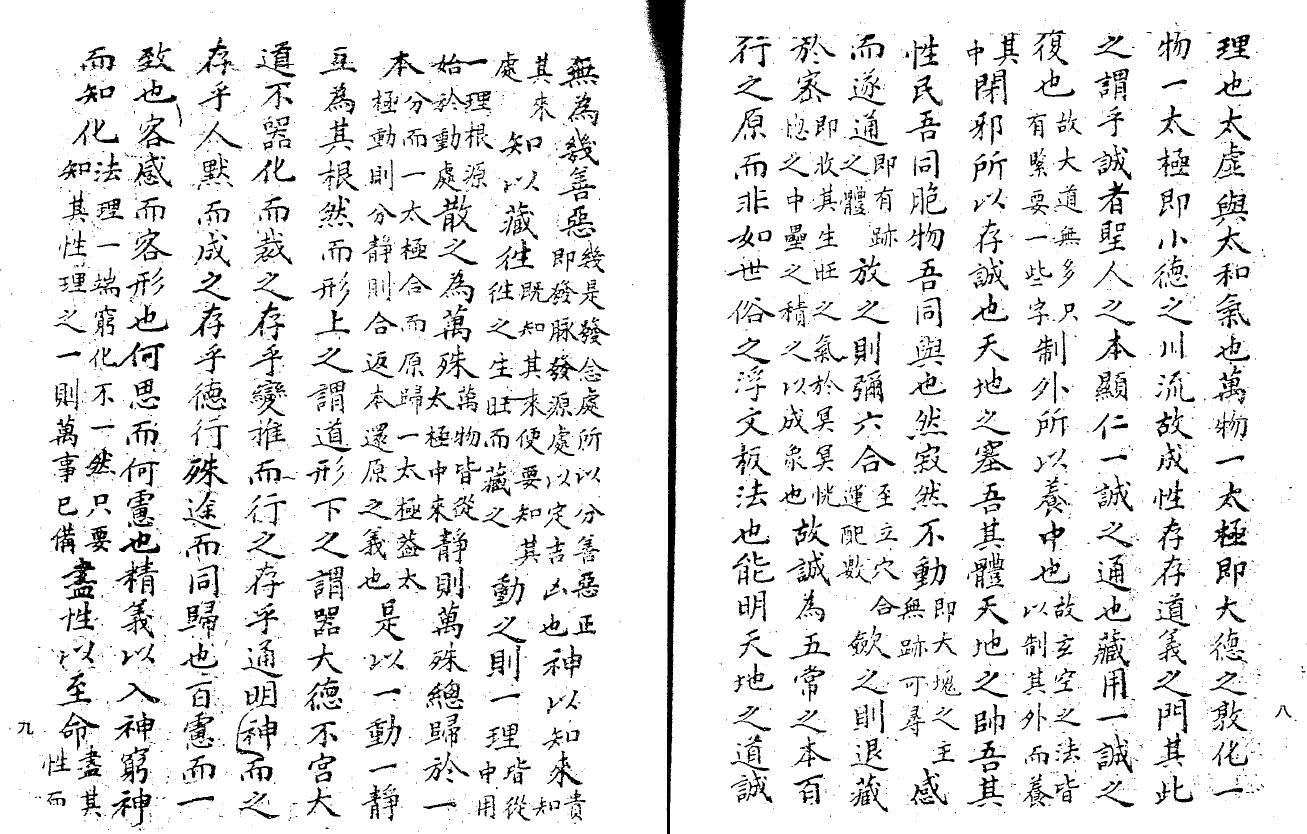 理也太虛與太和氣也萬物一太極即大德之敦化一
物一太極即小德之川流故成性存存道義之門其此
之謂乎誠者聖人之本顯仁一誠之通也藏用一誠之
復也故大道無多只有緊要一些字制外所以養中也故玄空之法皆以制其外而養
其中閑邪所以存誠也天地之塞吾其體天地之帥吾其
性民吾同胞物吾同與也然寂然不動即大塊之主無跡可尋感
而遂通即有跡之體放之則彌六合至立穴運配數合歛之則退藏
於密即收其生旺之氣於冥冥恍惚之中壘之積之以成象也故誠為五常之本百
行之原而非如世俗之浮文板法也能明天地之道誠
八
無為幾善惡幾是發念處所以分善惡正即發脉發源處以定吉凶也神以知來貴知
其來處知以藏往既知其來便要知其往之生旺而藏之動之則一理皆從中用
一理根源始於動處散之為萬殊萬物皆從太極中來靜則萬殊總歸於一
本分而一太極合而原歸一太極蓋太極動則分靜則合返本還原之義也是以一動一靜
互為其根然而形上之謂道形下之謂器大德不官大
道不器化而裁之存乎變推而行之存乎通明神而之
存乎人默而成之存乎德行殊途而同歸也百慮而一
致也容感而容形也何思而何慮也精義以入神窮神
而知化法理一端窮化不一然只要知其性理之一則萬事已備盡性以至命盡其性而
九